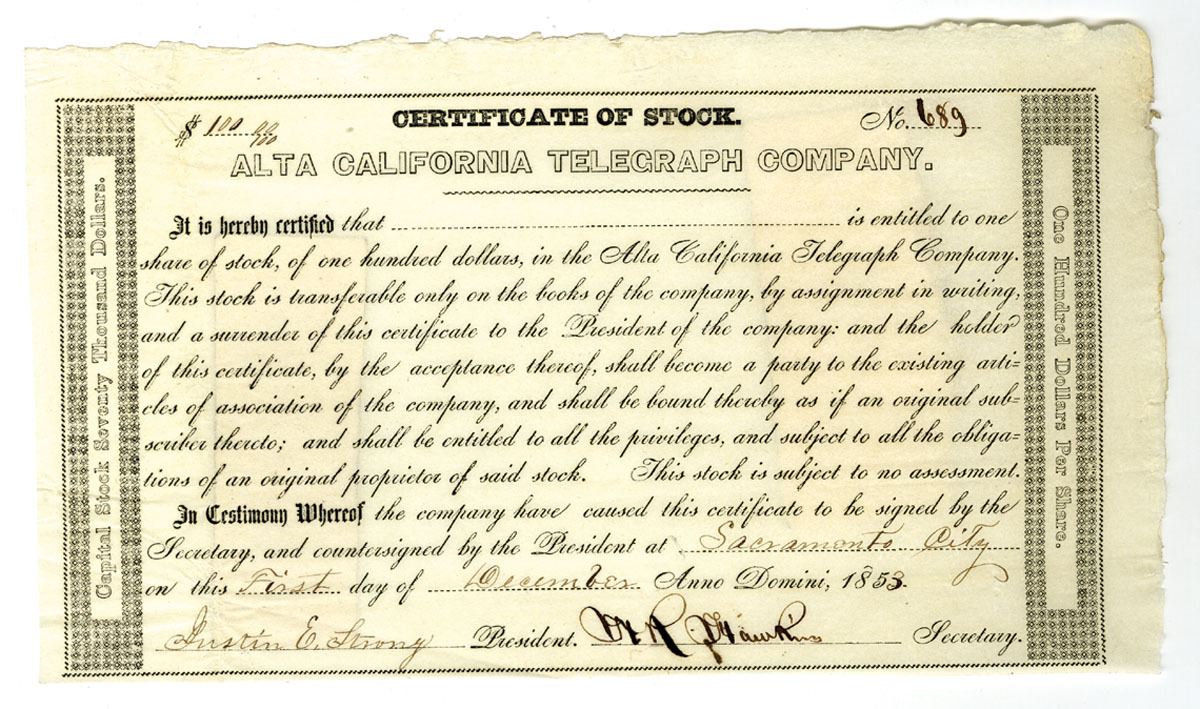 CERTIFICATE OF STOCK.
$ 100 00/100
No. 689
ALTA CALIFORNIA TELEGRAPH COMPANY.
It is hereby certified that is entitled to one
share of stock, of one hundred dollars, in the Alta California Telegraph Company.
This stock is transferable only on the books of the company, by assignment in writing,
and a surrender of this certificate to the President of the company: and the holder
of this certificate, by the acceptance thereof, shall become a party to the existing arti-
cles of association of the company, and shall be bound thereby as if an original sub-
scriber thereto; and shall be entitled to all the privileges, and subject to all the obliga-
tions of an original proprietor of said stock. This stock is subject to no assessment.
In Testimony Whereof the company have caused this certificate to be signed by the
Secretary, and countersigned by the President at Sacramento City
on this First day of December Anno Domini, 1853.
Justin E. Strong President. Secretary.
Capital Stock Seventy Thousand Dollars.
One Hundred Dollars Per Share.